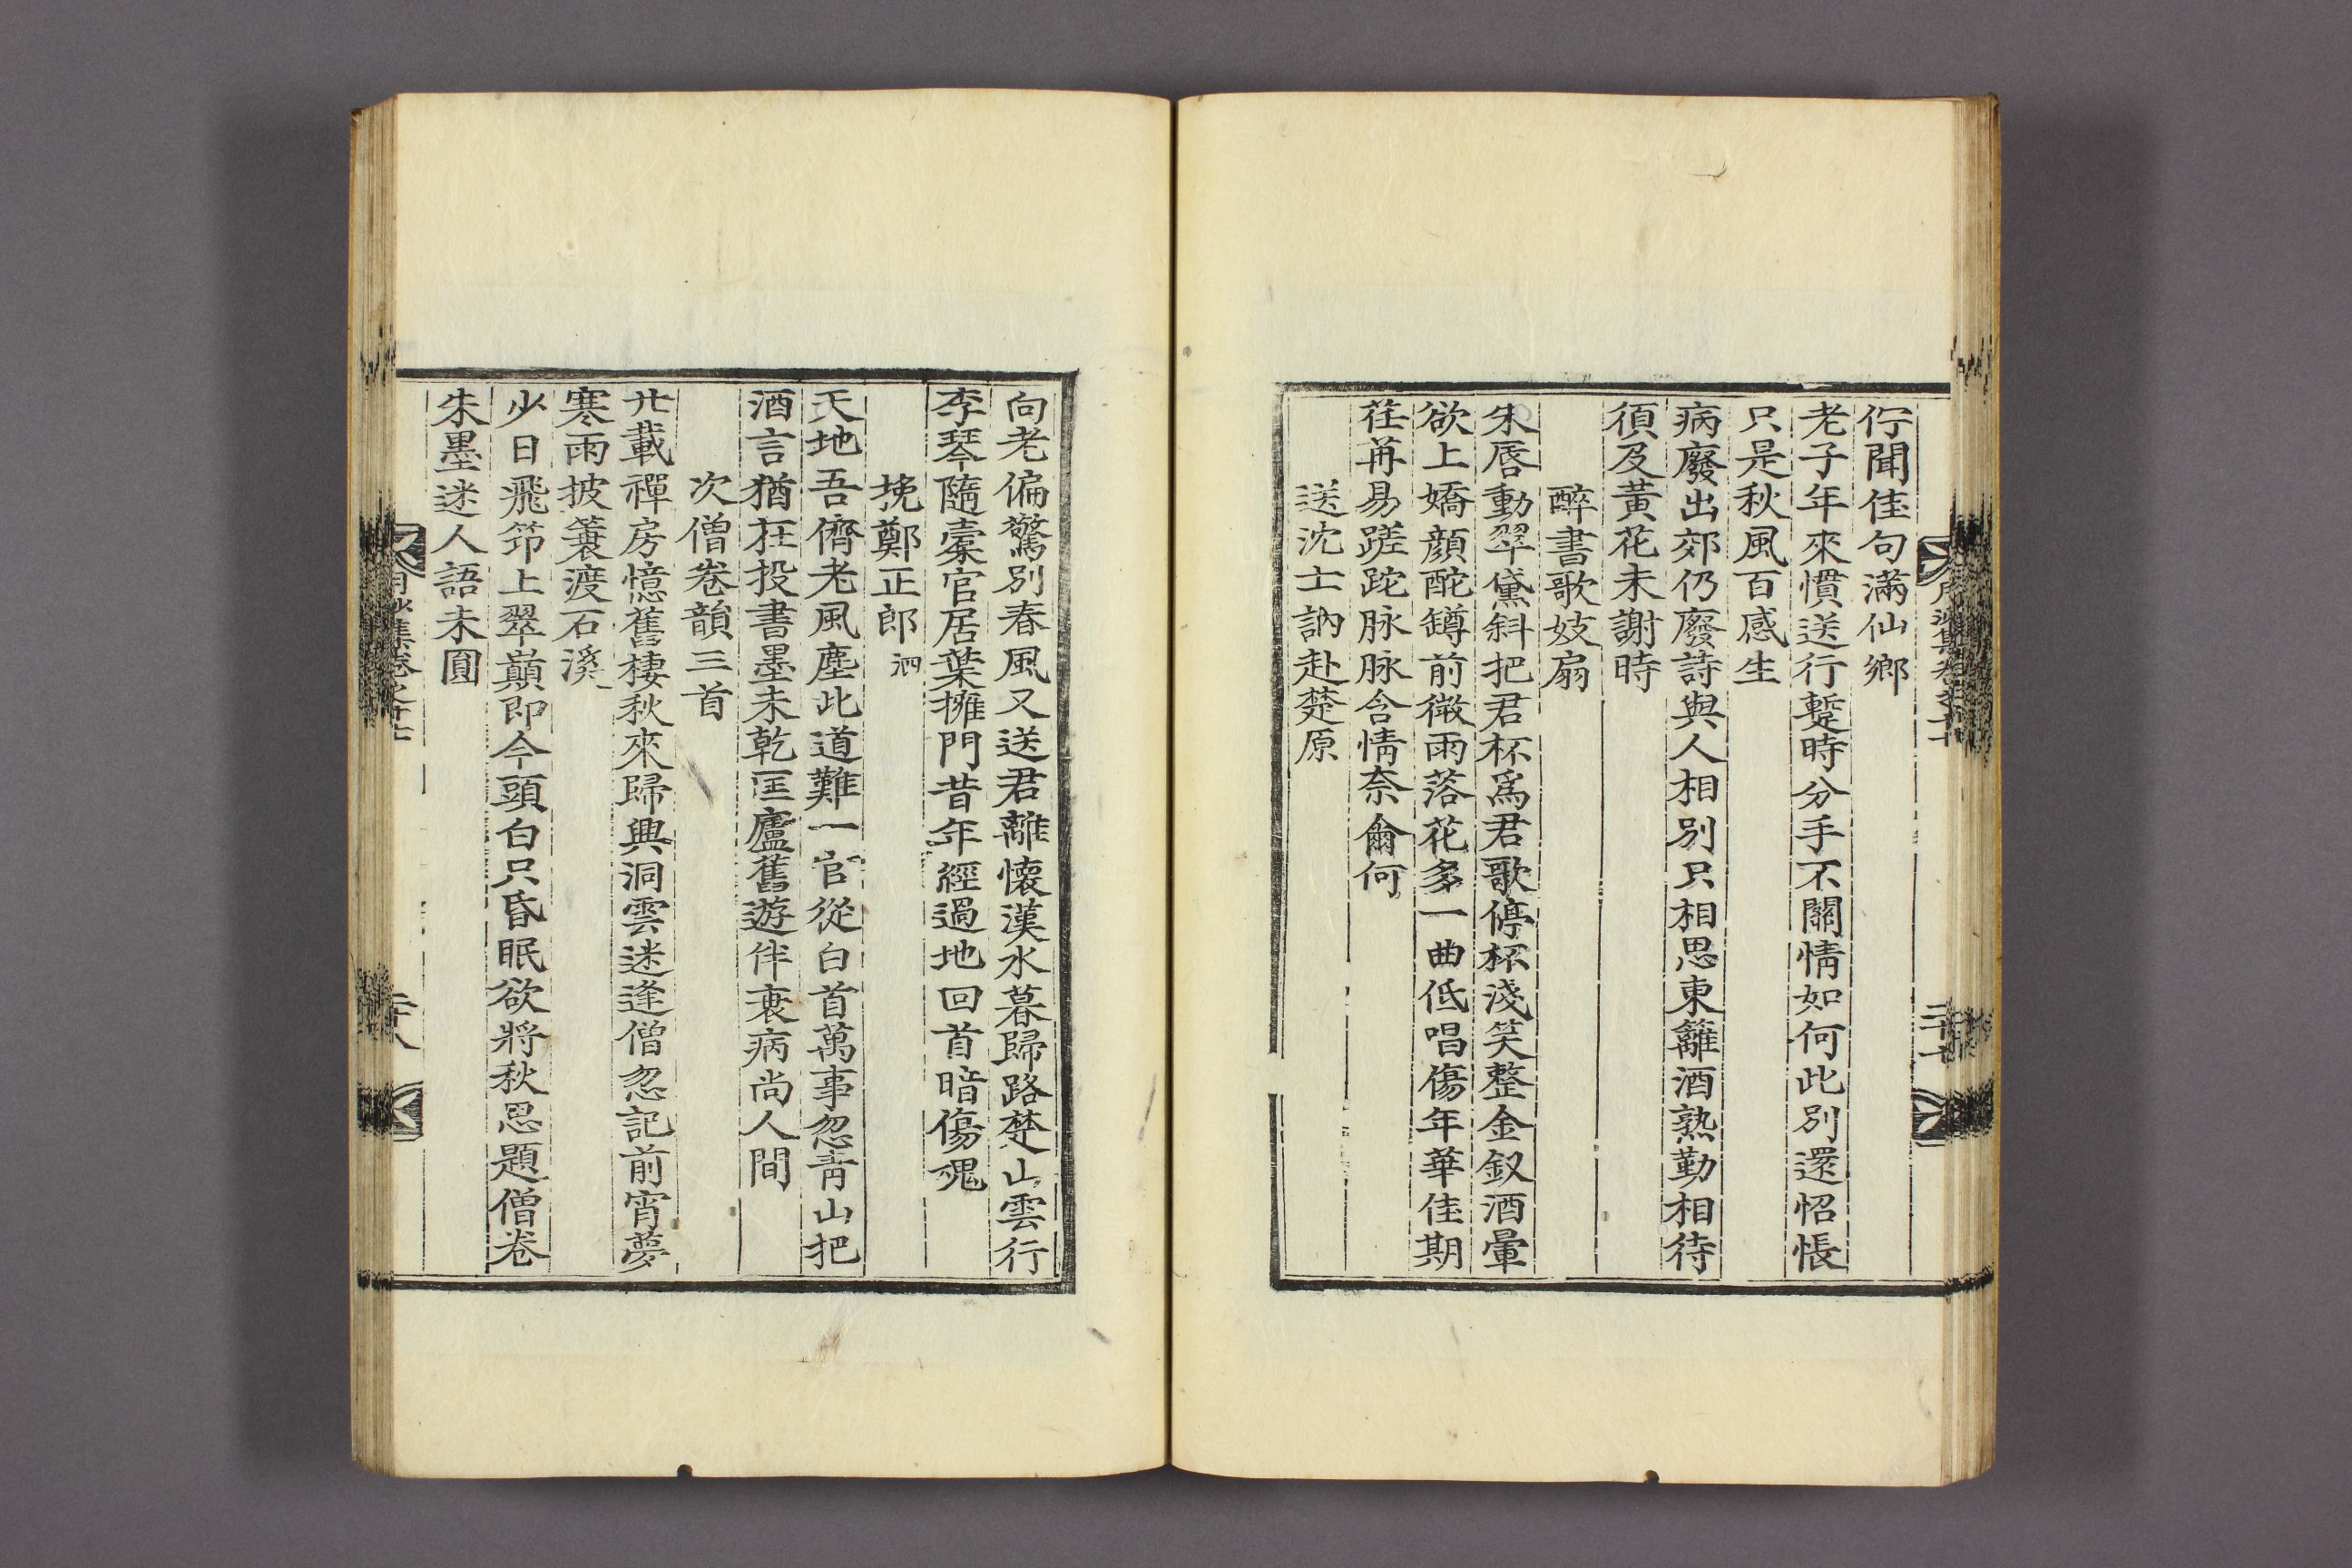 佇聞佳句滿仙鄉
老子年來慣送行蹔時分手不關情如何此別還怊悵
只是秋風百感生
病廢出郊仍廢詩與人相別只相思東籬酒熟勤相待
須及黃花未謝時
醉書歌妓扇
朱唇動翠黛斜把君杯爲君歌停杯淺笑整金釵酒暈
欲上嬌顔酡罇前微雨落花多一曲低唱傷年華佳期
荏苒易蹉跎脉脉含情奈爾何
送沈士訥赴楚原
向老偏驚別春風又送君離懷漢水暮歸路楚山雲行
李琴隨橐官居葉擁門昔年經過地回首暗傷魂
挽鄭正郎 泗
天地吾儕老風塵此道難一官從白首萬事忽青山把
酒言猶在投書墨未乾匡廬舊遊伴衰病尚人間
次僧卷韻三首
廿載禪房憶舊棲秋來歸興洞雲迷逢僧忽記前宵夢
寒雨披簑渡石溪
少日飛筇上翠巓即今頭白只昏眠欲將秋思題僧卷
朱墨迷人語未圓
月沙集卷之十七
二十八